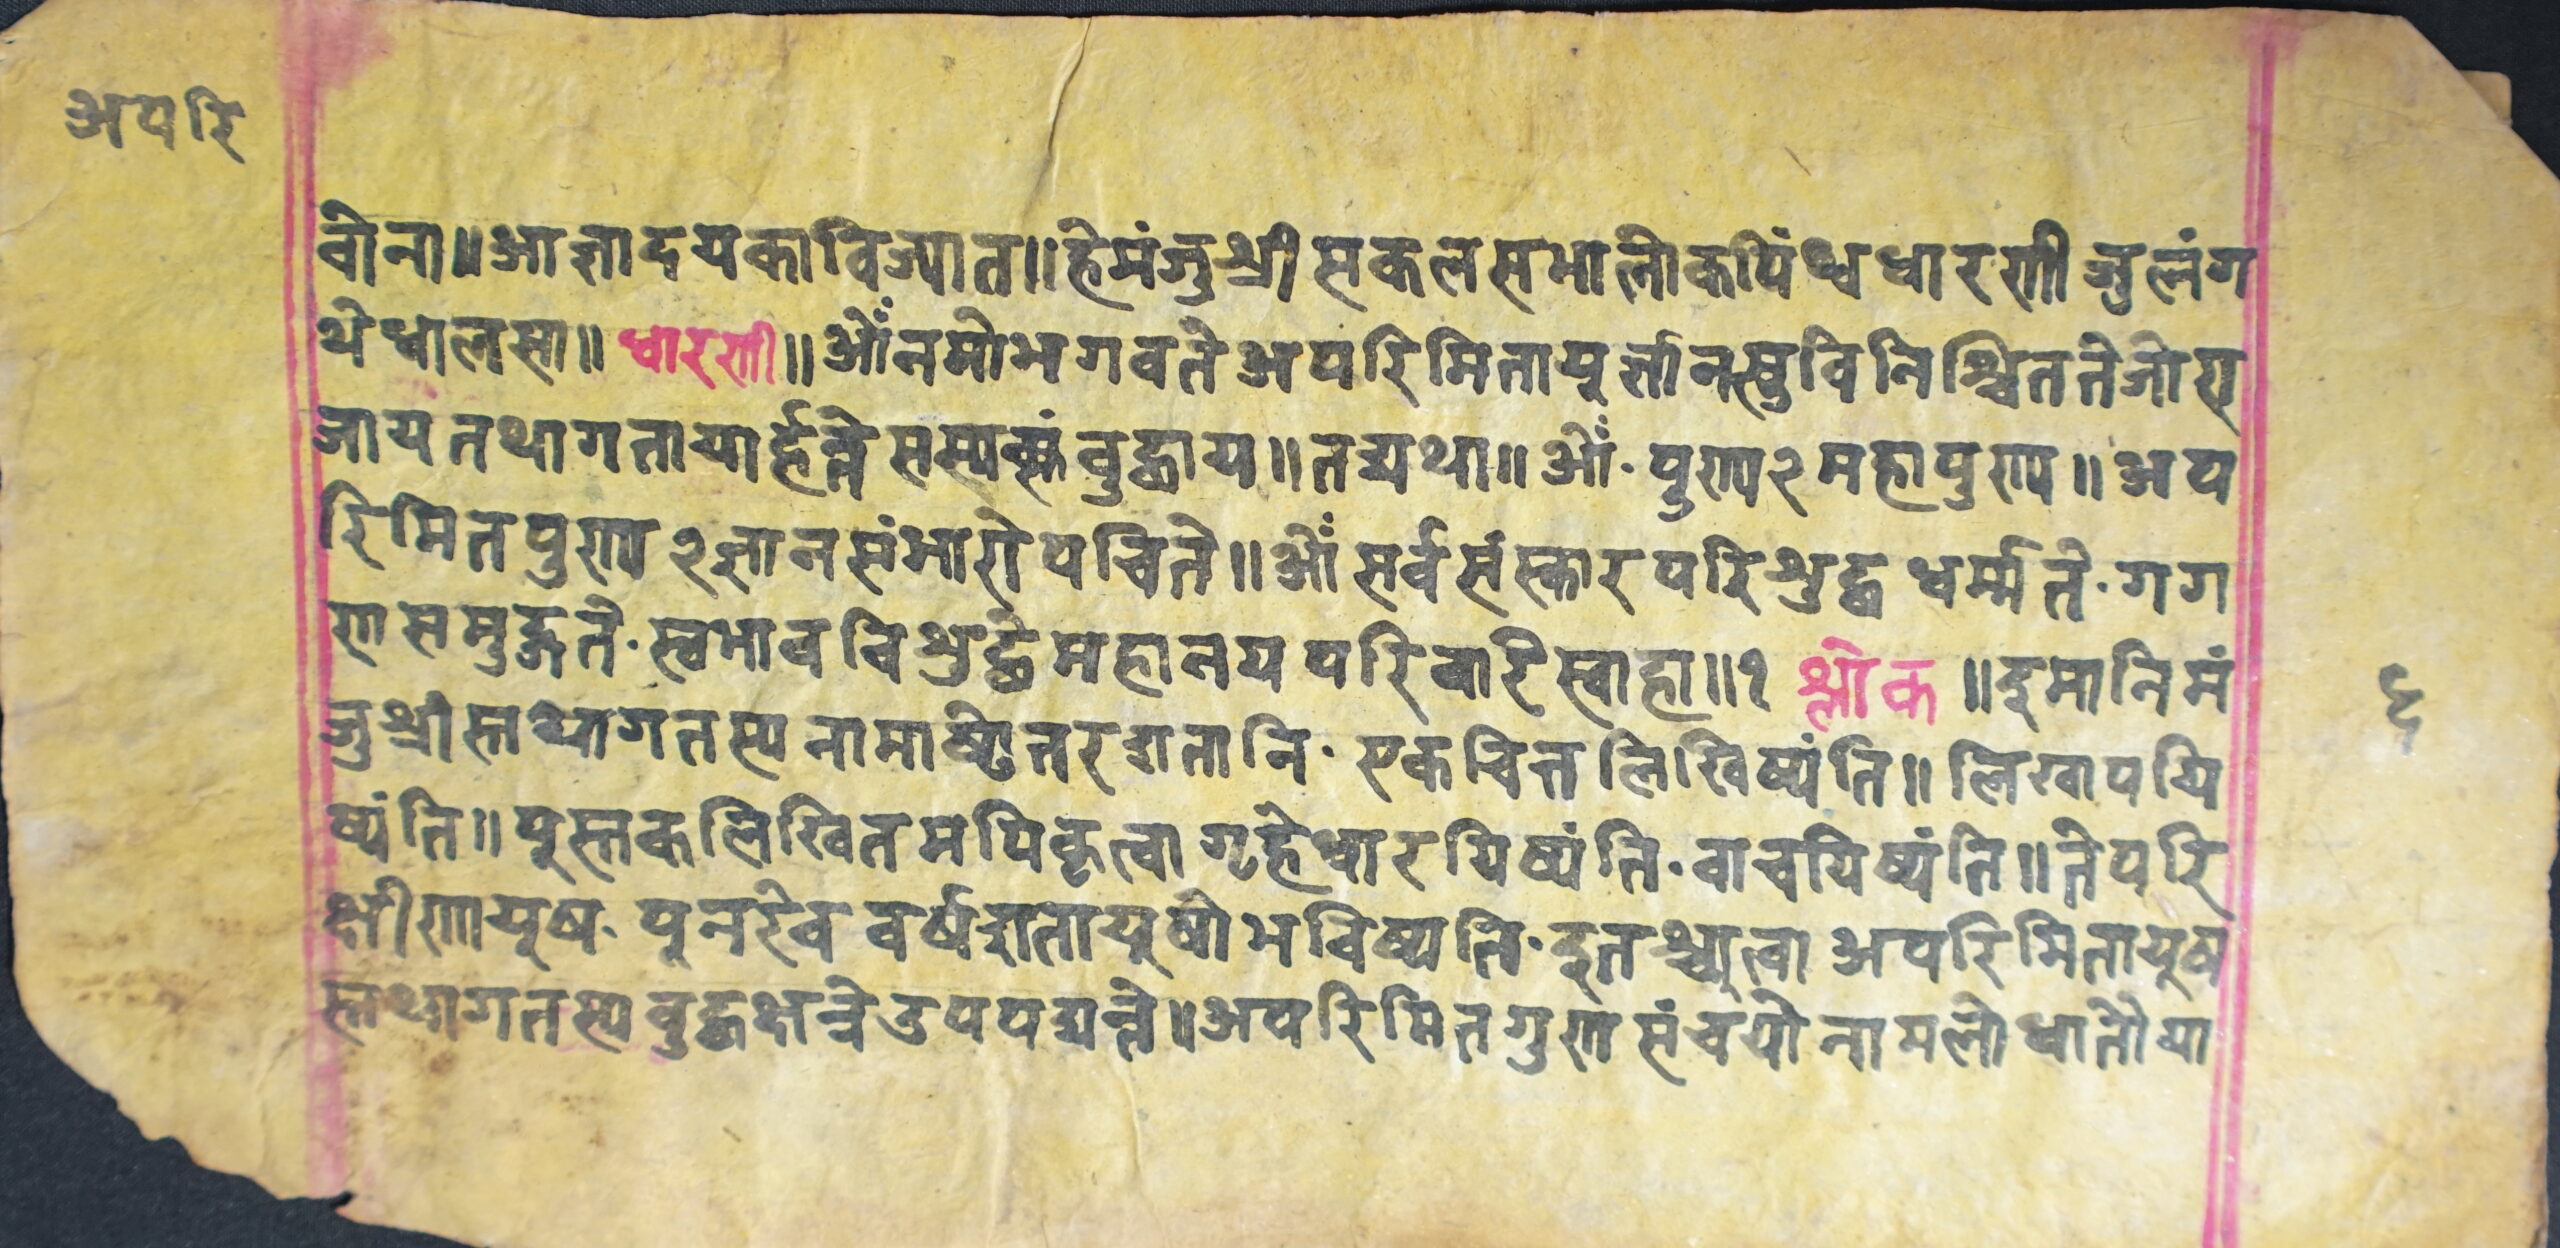 अपरि
वोना॥आज्ञादयकाविज्यात॥हेमंजुश्रीसकलसभालोकपिंथ्वधारणीजुलंग
थेधालसा॥धारणी॥ओँनमोभगवतेअपरिमितायुर्ज्ञानसुविनिश्चिततेजोरा
जायतथागतायार्हन्तेसम्यक्संवुद्धाय॥तद्यथा॥ओँ·पुण्य२महापुण्य॥अप
रिमितपुण्य२ज्ञानसंभारोपचिते॥ओँसर्वसंस्कारपरिशुद्धधर्म्मते·गग
णसमुद्गते·स्वभावविशुद्धेमहानयपरिवारेस्वाहा॥१श्लोक॥इमानिमं
जुश्रीस्तथागतस्यनामाष्टोत्तरशतानि·एकचित्तलिखिष्यंति॥लिखापयि
ष्यंति॥पुस्तकलिखितमपिकृत्वागृहेधारयिष्यंति·वाचयिष्यंति॥तेपरि
क्षीणायुष·पुनरेववर्षशतायुषोभविष्यति·इतश्च्युत्वाअपरिमितायुष
स्तथागतस्यवुद्धक्षत्रेउपपद्यन्ते॥अपरिमितगुणसंचयोनामलोधातौया
६